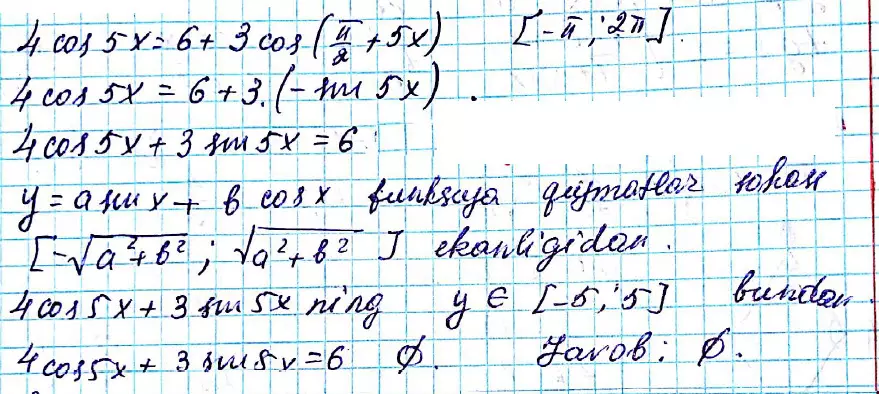 4 cos 5x = 6 + 3 cos (π/2 + 5x) [-π ; 2π].
4 cos 5x = 6 + 3. (- sin 5x) .
4 cos 5x + 3 sin 5x = 6
y = a sin x + b cos x funksiya qiymatlar sohasi
[-√a²+b² ; √a²+b² ] ekanligidan.
4 cos 5x + 3 sin 5x ning y ∈ [-5 ; 5] bundan
4 cos 5x + 3 sin 5x = 6 ∅. Javob: ∅.